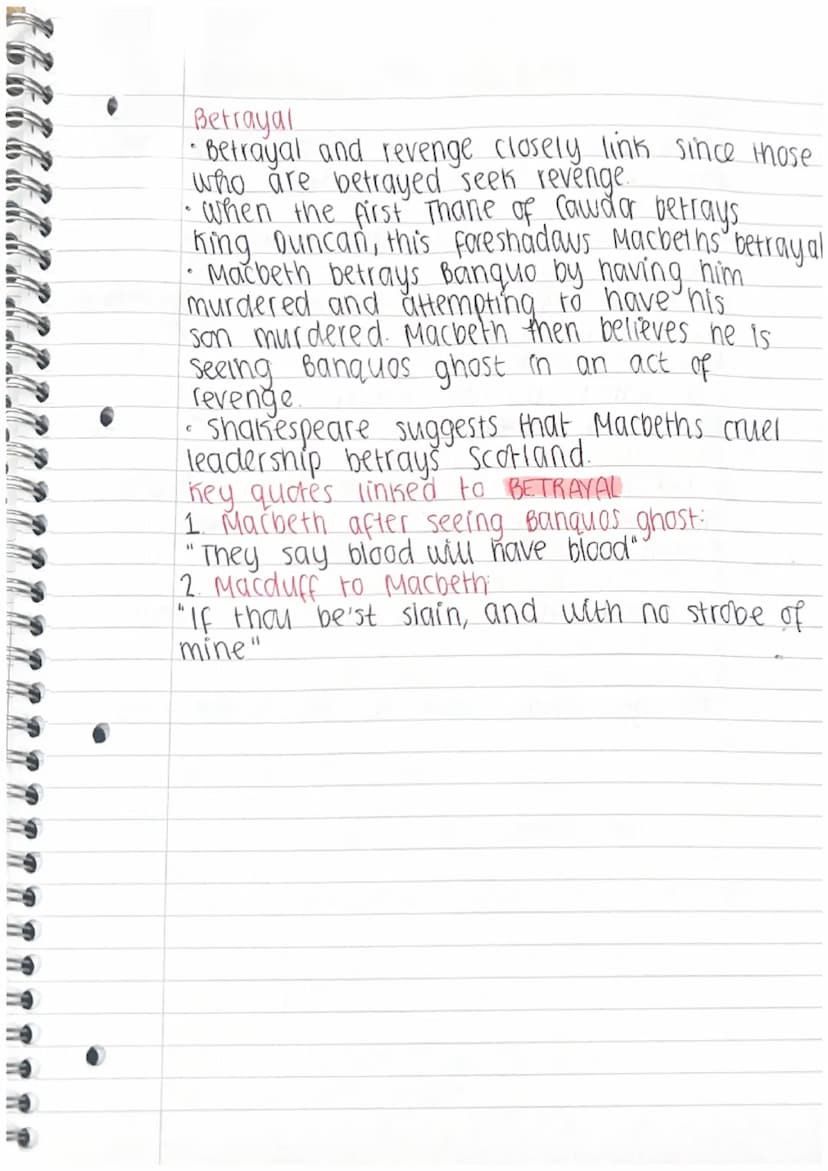 Betrayal
• Betrayal and revenge closely link since those
who are betrayed seek revenge.
• When the first Thane of Cawdor betrays
King Duncan, this foreshadows Macbeths betrayal
• Macbeth betrays Banquo by having him
murdered and attempting to have his
son murdered. Macbeth then believes he is
seeing Banquos ghost in an act of
revenge.
• Shakespeare suggests that Macbeths cruel
leadership betrays Scotland.
Key quotes linked to BETRAYAL
1. Macbeth after seeing Banquos ghost:
"They say blood will have blood"
2. Macduff to Macbeth:
"If thou be'st slain, and with no strobe of
mine"